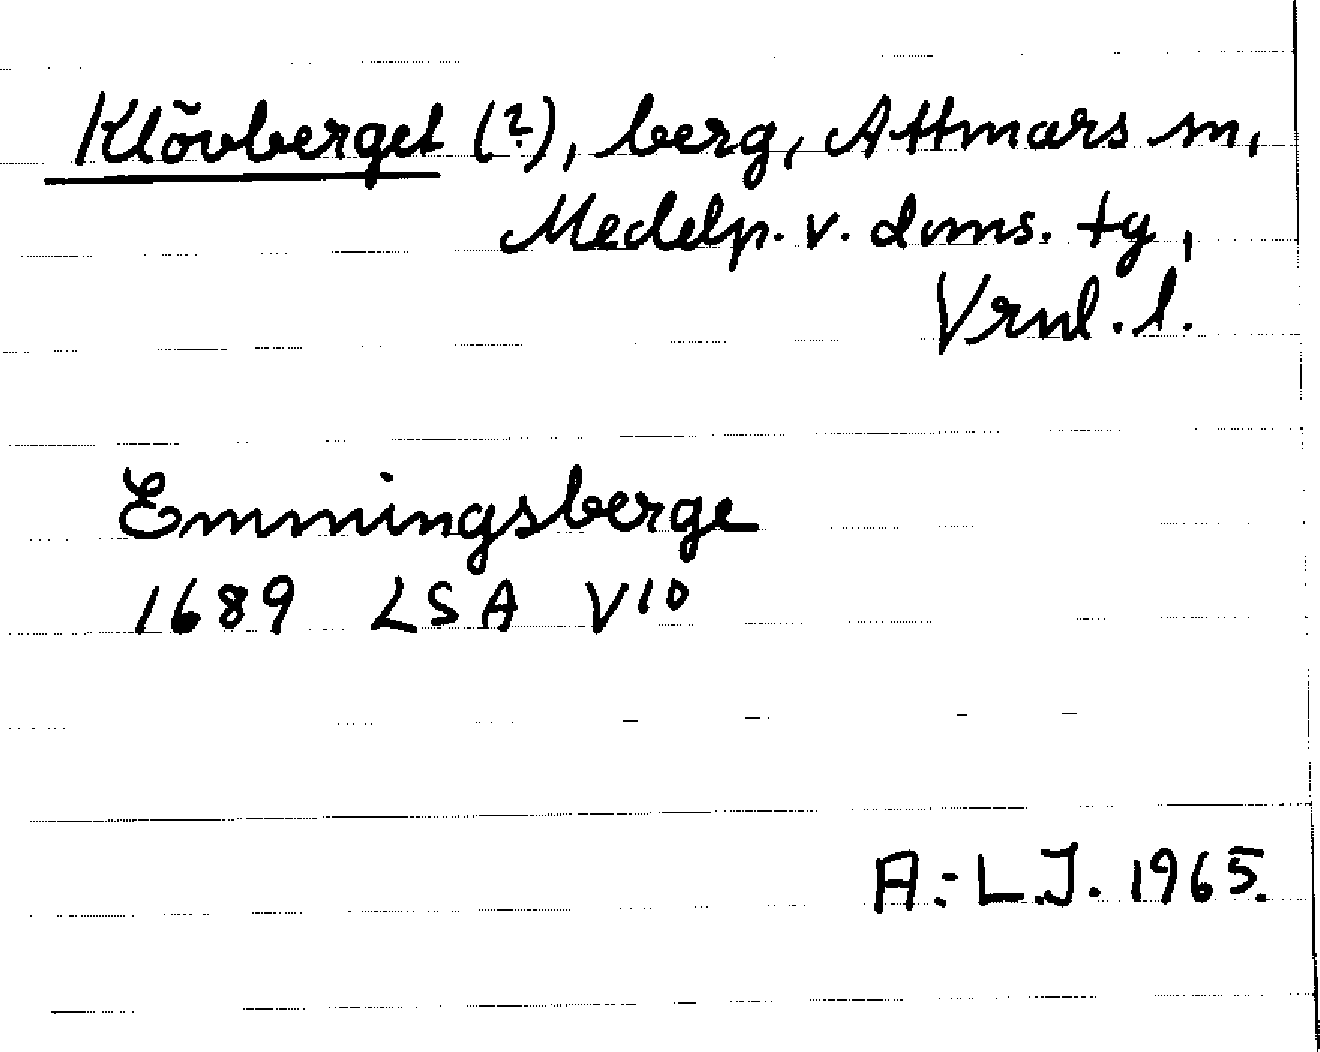 Klövberget (?), berg, Attmars sn,
Medelp. v. doms. tg,
Vrnl. l.
Emmingsberge
1689 LSA V10
A.-L.J. 1965.